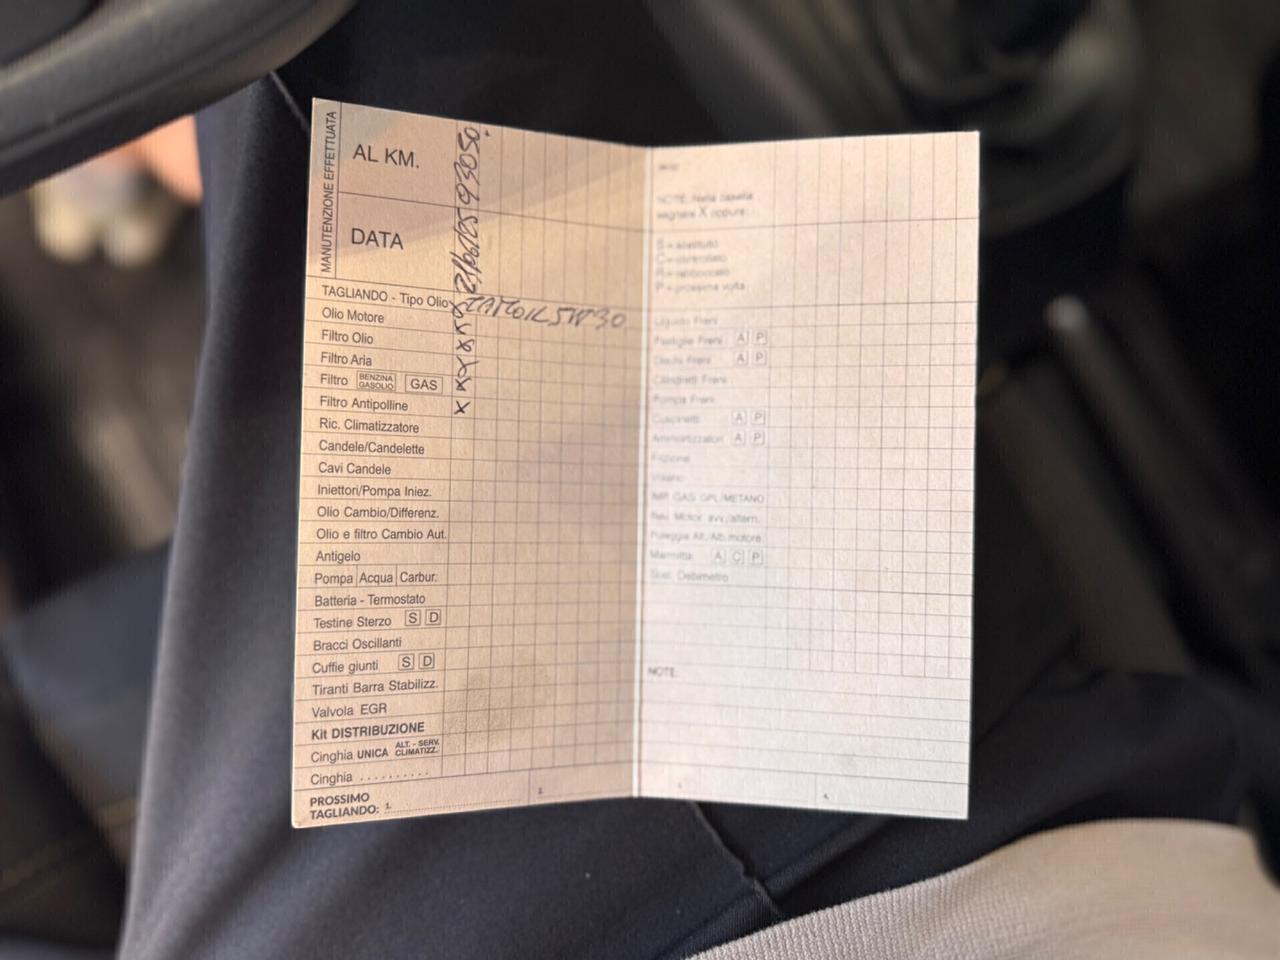 MANUTENZIONE EFFETTUATA
AL KM. 93050
DATA
TAGLIANDO - Tipo Olio X 5W30
Olio Motore X
Filtro Olio X
Filtro Aria X
Filtro BENZINA GASOLIO GAS X
Filtro Antipolline X
Ric. Climatizzatore
Candele/Candelette
Cavi Candele
Iniettori/Pompa Iniez.
Olio Cambio/Differenz.
Olio e filtro Cambio Aut.
Antigelo
Pompa Acqua Carbur.
Batteria - Termostato
Testine Sterzo S D
Bracci Oscillanti
Cuffie giunti S D
Tiranti Barra Stabilizz.
Valvola EGR
Kit DISTRIBUZIONE
Cinghia UNICA ALT. - SERV. CLIMATIZZ.
Cinghia ..........
PROSSIMO
TAGLIANDO: 1. 2.
NOTE: Nella casella
segnare X oppure:
S = sostituito
C = controllato
R = rabboccato
P = prossima volta
Liquido Freni
Pastiglie Freni A P
Dischi Freni A P
Cilindretti Freni
Pompa Freni
Cuscinetti A P
Ammortizzatori A P
Frizione
Volano
IMP. GAS GPL/METANO
Rev. Motor. avv./altern.
Puleggia Alt./Alb. motore
Marmitta A C P
Sost. Debimetro
NOTE:
4.